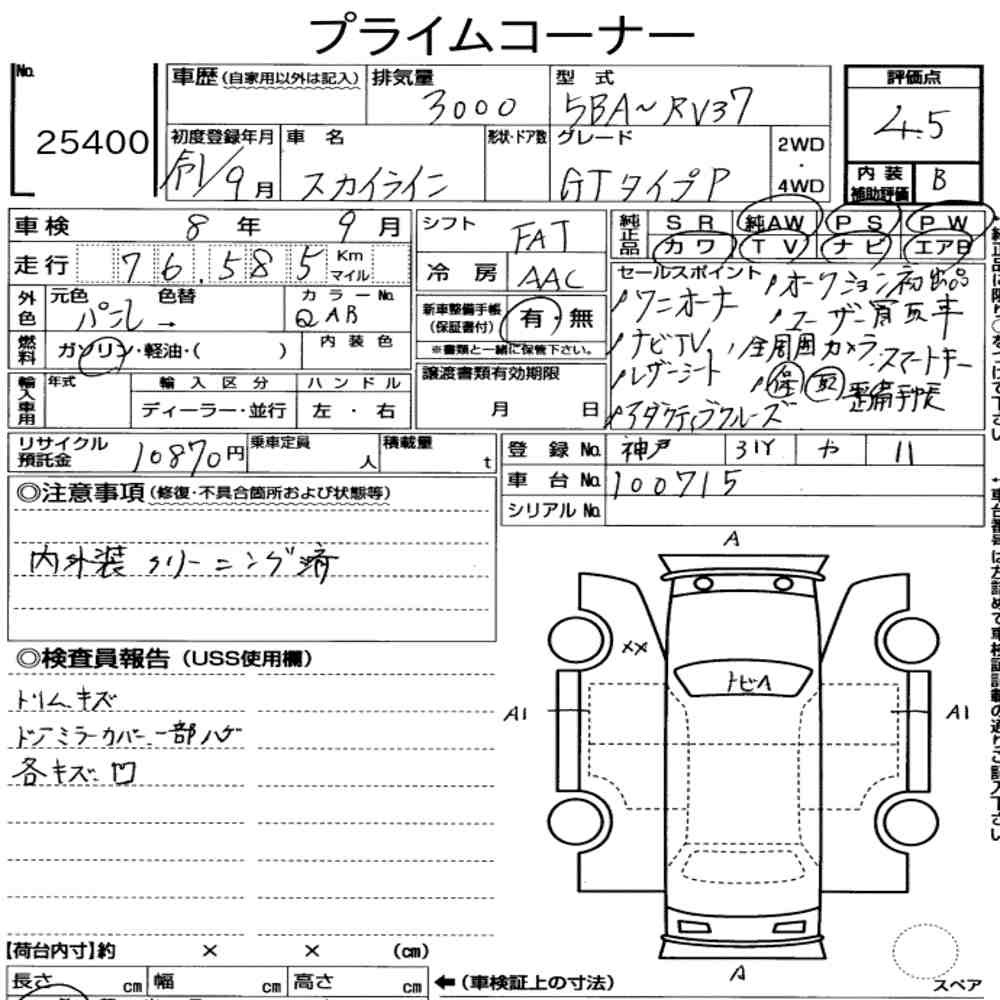 プライムコーナー
No. 25400
車歴(自家用以外は記入)
排気量 3000
型式 5BA~RV37
評価点 4.5
初度登録年月 令1/9月
車名 スカイライン
形状・ドア数
グレード GTタイプP
2WD・4WD
内装補助評価 B
車検 8年 9月
シフト FAT
純正品 SR 純AW PS PW
カワ TV ナビ エアB
走行 76,585 Km マイル
冷房 AAC
セールスポイント
ワンオーナー
オークション初出品
ユーザー買取車
ナビTV
全周囲カメラ・スマートキー
レザーシート
保 取 整備手帳
アダクティブクルーズ
外色 元色 パール→
色替
カラーNo. QAB
新車整備手帳(保証書付) 有・無
※書類と一緒に保管下さい。
燃料 ガソリン・軽油・( )
内装色
輸入車用 年式
輸入区分 ディーラー・並行
ハンドル 左・右
譲渡書類有効期限
月 日
リサイクル預託金 10870円
乗車定員 人
積載量 t
登録No. 神戸 31Y や 11
車台No. 100715
シリアルNo.
◎注意事項(修復・不具合箇所および状態等)
内外装クリーニング済
◎検査員報告(USS使用欄)
トリムキズ
ドアミラーカバー一部ハゲ
各キズ凹
A
XX
トビA
A1
A1
A
スペア
【荷台内寸】約 × × (cm)
長さ cm 幅 cm 高さ cm
←(車検証上の寸法)
←車台番号は左詰めで車検証記載の通りご記入下さい